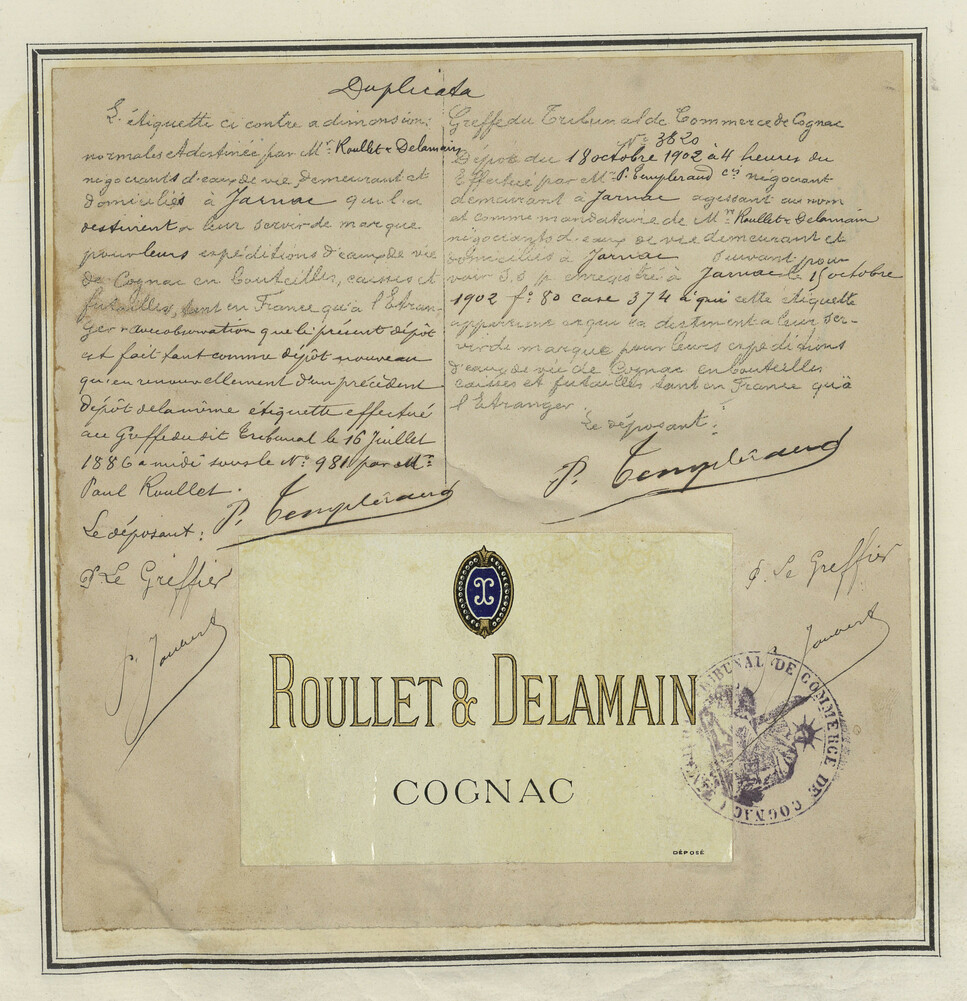 Duplicata
L'étiquette ci contre a dimensions
normales et destinée par Mrs Roullet & Delamain
négociants d'eaux de vie, demeurant et
domiciliés à Jarnac qui la
destinent à leur servir de marque
pour leurs expéditions d'eaux de vie
de Cognac en bouteilles, caisses et
futailles, tant en France qu'à l'Etran-
ger avec observation que le présent dépôt
est fait tant comme dépôt nouveau
qu'en renouvellement d'un précédent
dépôt de la même étiquette effectué
au Greffe du dit Tribunal le 16 Juillet
1886 à midi sous le No 981 par Mr
Paul Roullet.
Le déposant:
P. Templéraud
P. Le Greffier
P. Jouvert
Greffe du Tribunal de Commerce de Cognac
No 3820
Dépôt du 18 octobre 1902 à 4 heures du
Effectué par Mr P. Templéraud négociant
demeurant à Jarnac agissant au nom
et comme mandataire de Mrs Roullet & Delamain
négociants d'eaux de vie demeurant et
domiciliés à Jarnac suivant pou-
voir S.S.P. enregistré à Jarnac le 15 octobre
1902 fo 80 case 374 à qui cette étiquette
appartient et qui la destinent à leur ser-
vir de marque pour leurs expéditions
d'eaux de vie de Cognac en bouteilles
caisses et futailles tant en France qu'à
l'Etranger.
Le déposant:
P. Templéraud
P. Le Greffier
Jouvert
ROULLET & DELAMAIN
COGNAC
DÉPOSÉ
TRIBUNAL DE COMMERCE DE COGNAC